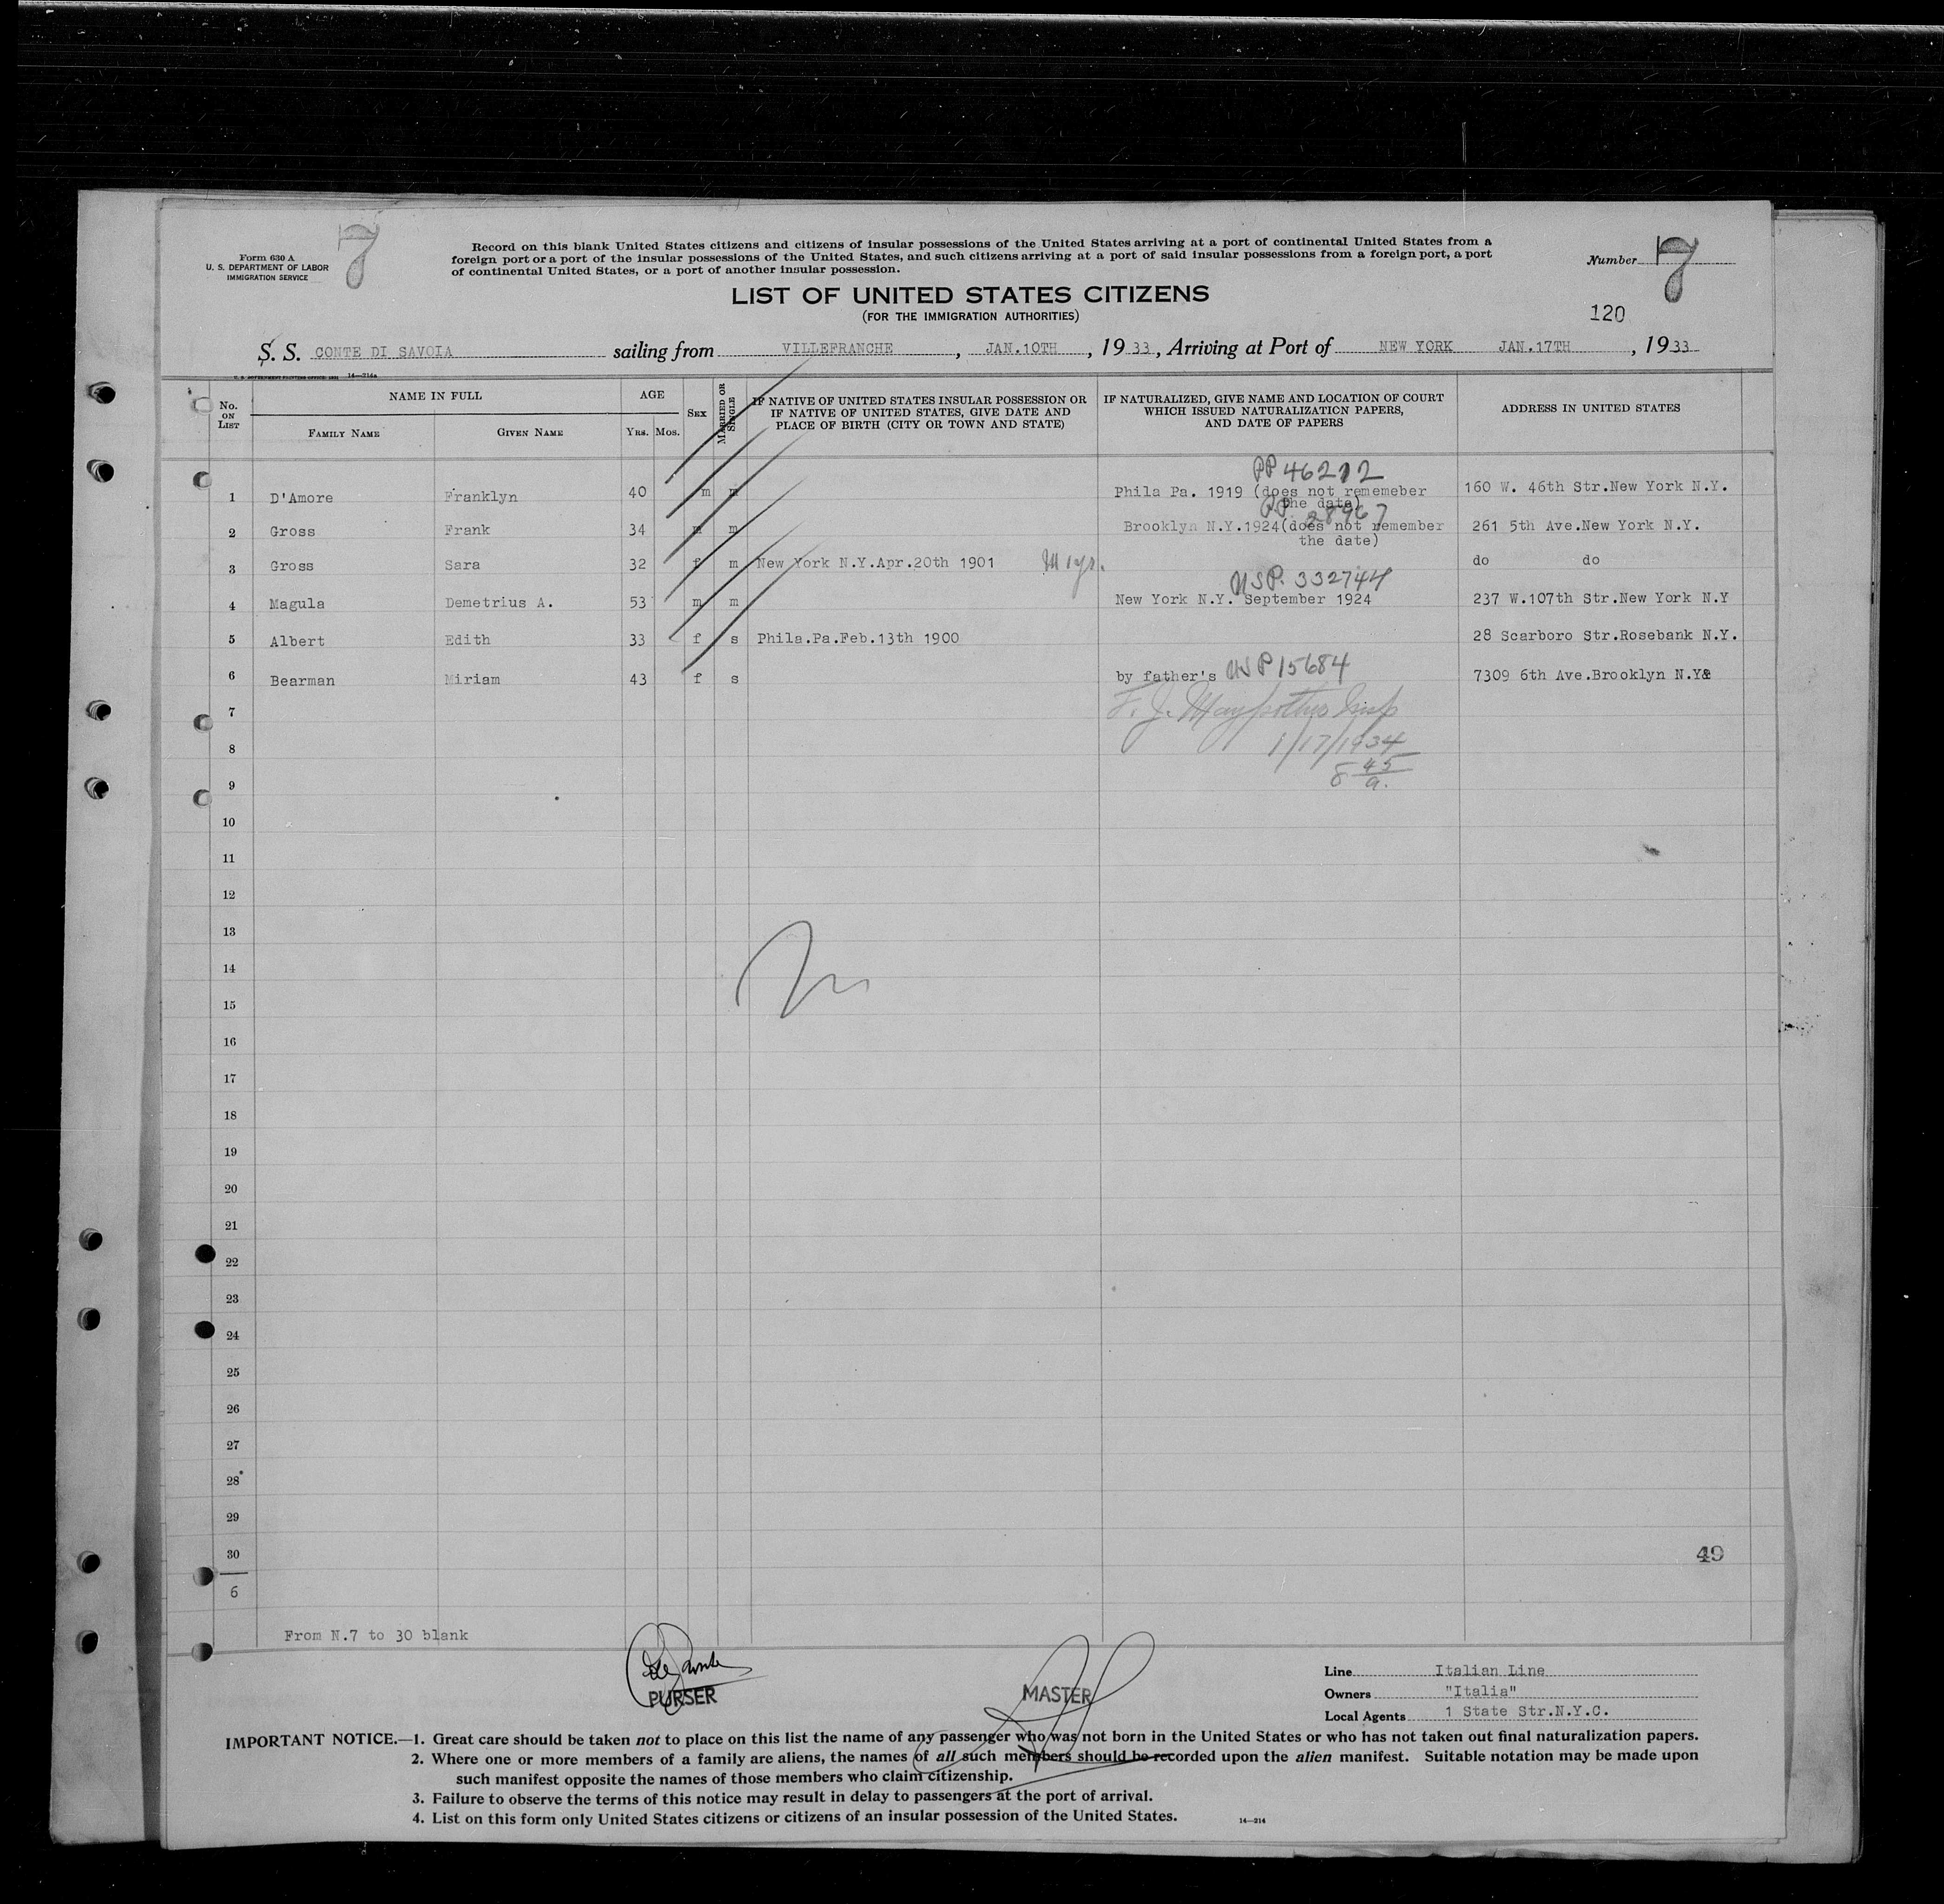 7
Form 630 A
U. S. DEPARTMENT OF LABOR
IMMIGRATION SERVICE
Record on this blank United States citizens and citizens of insular possessions of the United States arriving at a port of continental United States from a
foreign port or a port of the insular possessions of the United States, and such citizens arriving at a port of said insular possessions from a foreign port, a port
of continental United States, or a port of another insular possession.
Number 7
LIST OF UNITED STATES CITIZENS
(FOR THE IMMIGRATION AUTHORITIES)
120
S. S. CONTE DI SAVOIA sailing from VILLEFRANCHE, JAN.10TH, 1933, Arriving at Port of NEW YORK JAN.17TH, 1933
14—214a
No. ON LIST
NAME IN FULL
FAMILY NAME GIVEN NAME
AGE
YRS. MOS.
SEX
MARRIED OR SINGLE
IF NATIVE OF UNITED STATES INSULAR POSSESSION OR
IF NATIVE OF UNITED STATES, GIVE DATE AND
PLACE OF BIRTH (CITY OR TOWN AND STATE)
IF NATURALIZED, GIVE NAME AND LOCATION OF COURT
WHICH ISSUED NATURALIZATION PAPERS,
AND DATE OF PAPERS
ADDRESS IN UNITED STATES
PP 46212
1 D'Amore Franklyn 40 m m Phila Pa. 1919 (does not rememeber 160 W. 46th Str.New York N.Y.
the date)
PP. 28967
2 Gross Frank 34 m m Brooklyn N.Y.1924(does not remember 261 5th Ave.New York N.Y.
the date)
3 Gross Sara 32 f m New York N.Y.Apr.20th 1901 do do
USP. 332744
4 Magula Demetrius A. 53 m m New York N.Y. September 1924 237 W.107th Str.New York N.Y
5 Albert Edith 33 f s Phila.Pa.Feb.13th 1900 28 Scarboro Str.Rosebank N.Y.
6 Bearman Miriam 43 f s by father's USP 15684 7309 6th Ave.Brooklyn N.Y&
7 F. J. Insp
8 1/17/1934
8 45/a.
9
10
11
12
13
14
15
16
17
18
19
20
21
22
23
24
25
26
27
28
29
30
49
6
From N.7 to 30 blank
PURSER
MASTER
Line Italian Line
Owners "Italia"
Local Agents 1 State Str.N.Y.C.
IMPORTANT NOTICE.—1. Great care should be taken not to place on this list the name of any passenger who was not born in the United States or who has not taken out final naturalization papers.
2. Where one or more members of a family are aliens, the names of all such members should be recorded upon the alien manifest. Suitable notation may be made upon
such manifest opposite the names of those members who claim citizenship.
3. Failure to observe the terms of this notice may result in delay to passengers at the port of arrival.
4. List on this form only United States citizens or citizens of an insular possession of the United States.
14—214